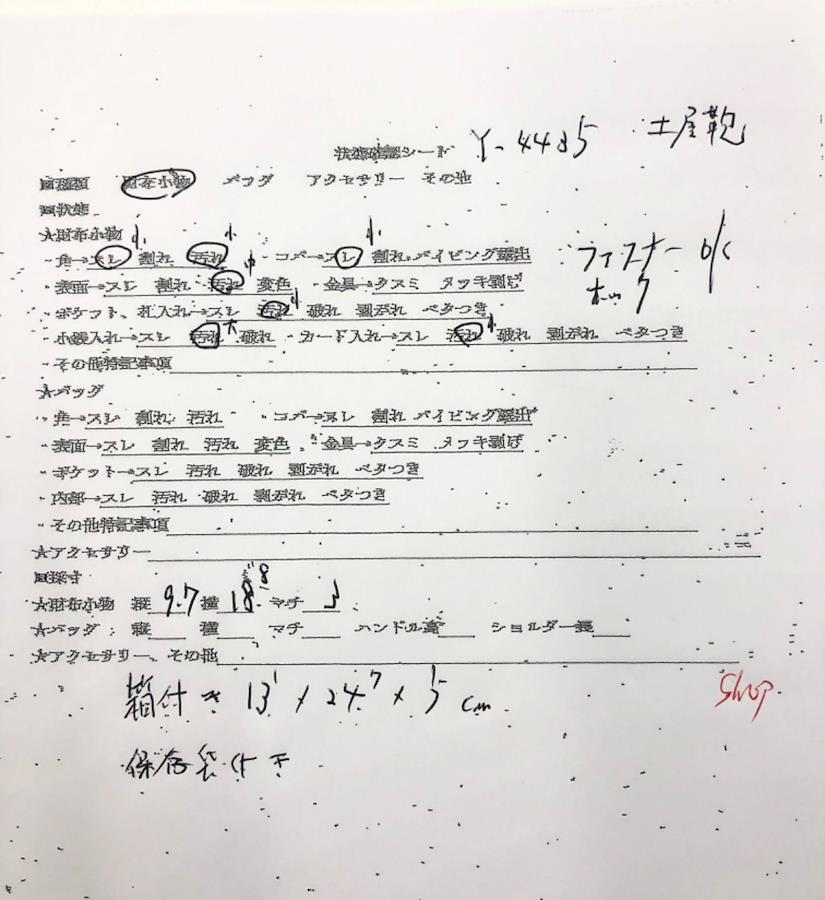 状態確認シート Y-4485 土屋鞄
□種類 財布小物 バッグ アクセサリー その他
□状態
★財布小物 小 小 小
・角→スレ 割れ 汚れ ・コバ→スレ 割れ パイピング露出 ファスナー ok
・表面→スレ 割れ 汚れ 変色 ・金具→クスミ メッキ剥げ 中 ホック
・ポケット、札入れ→スレ 汚れ 破れ 剥がれ ベタつき 小
・小銭入れ→スレ 汚れ 破れ ・カード入れ→スレ 汚れ 破れ 剥がれ ベタつき 大 小
・その他特記事項
★バッグ
・角→スレ 割れ 汚れ ・コバ→スレ 割れ パイピング露出
・表面→スレ 割れ 汚れ 変色 ・金具→クスミ メッキ剥げ
・ポケット→スレ 汚れ 破れ 剥がれ ベタつき
・内部→スレ 汚れ 破れ 剥がれ ベタつき
・その他特記事項
★アクセサリー
□採寸
★財布小物 縦 9.7 横 18.8 マチ 3
★バッグ 縦 横 マチ ハンドル高 ショルダー長
★アクセサリー、その他
箱付き 13.1 × 24.7 × 5 cm shop
保存袋付き